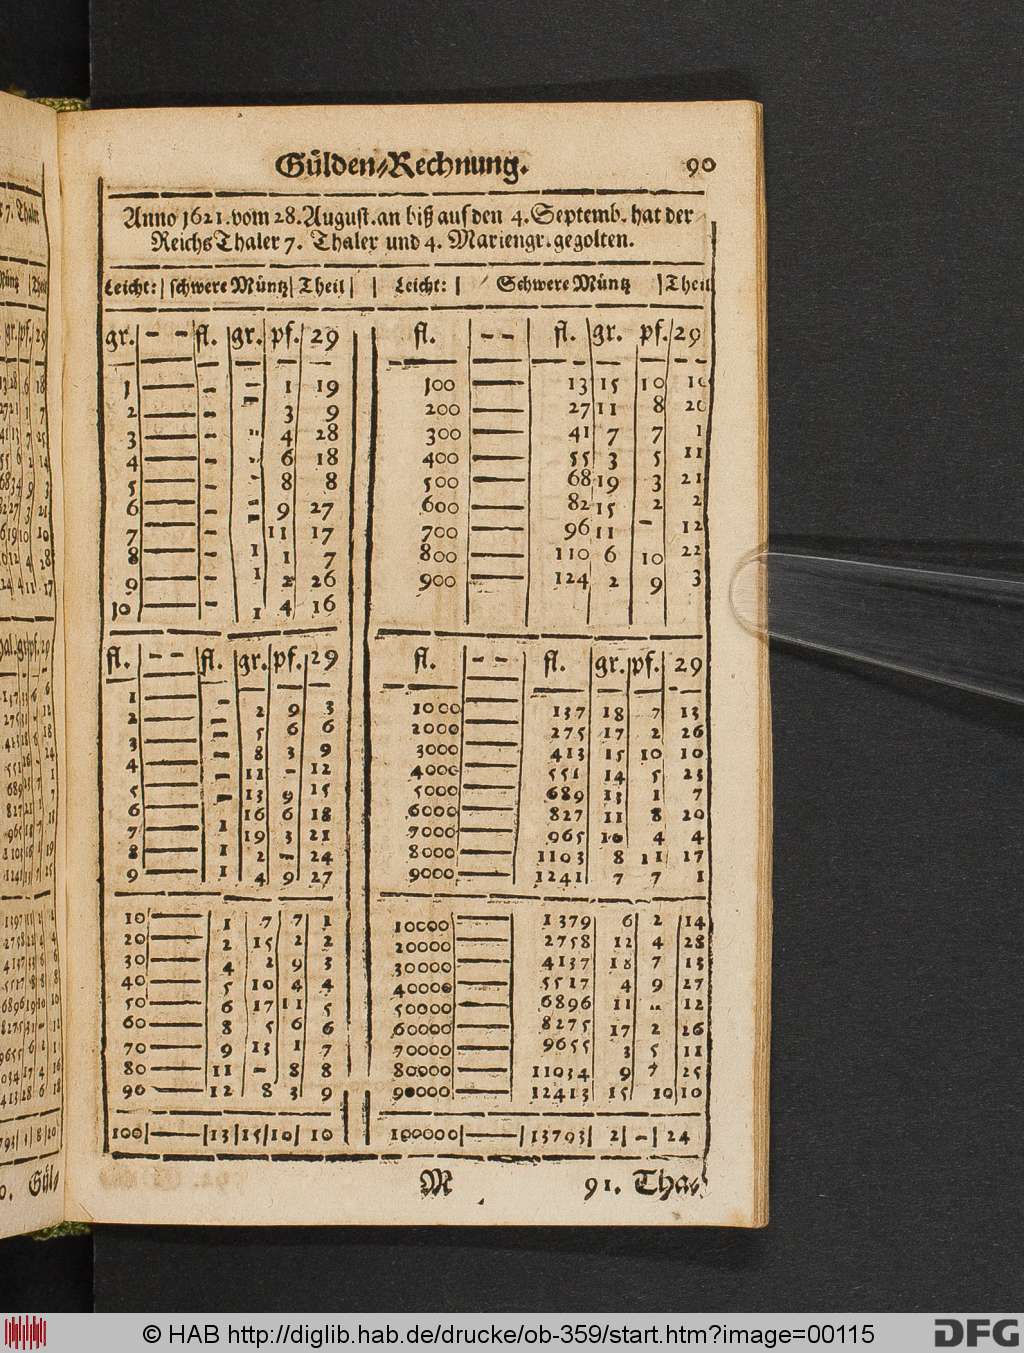 Gülden-Rechnung. 90
Anno 1621. vom 28. August. an biß auf den 4. Septemb. hat der
Reichs Thaler 7. Thaler und 4. Mariengr. gegolten.
Leicht: | schwere Müntz | Theil
gr. – – fl. gr. pf. 29
1 — – – 1 19
2 — – – 3 9
3 — – " 4 28
4 — – - 6 18
5 — – - 8 8
6 — – - 9 27
7 — – – 11 17
8 — – 1 1 7
9 — – 1 2 26
10 — – 1 4 16
fl. – – fl. gr. pf. 29
1 — – 2 9 3
2 — – 5 6 6
3 — – 8 3 9
4 — – 11 – 12
5 — – 13 9 15
6 — – 16 6 18
7 — 1 19 3 21
8 — 1 2 – 24
9 — 1 4 9 27
10 — 1 7 7 1
20 — 2 15 2 2
30 — 4 2 9 3
40 — 5 10 4 4
50 — 6 17 11 5
60 — 8 5 6 6
70 — 9 13 1 7
80 — 11 – 8 8
90 — 12 8 3 9
100 — 13 15 10 10
Leicht: | Schwere Müntz | Theil
fl. – – fl. gr. pf. 29
100 — 13 15 10 10
200 — 27 11 8 20
300 — 41 7 7 1
400 — 55 3 5 11
500 — 68 19 3 21
600 — 82 15 2 2
700 — 96 11 – 12
800 — 110 6 10 22
900 — 124 2 9 3
fl. – – fl. gr. pf. 29
1000 — 137 18 7 13
2000 — 275 17 2 26
3000 — 413 15 10 10
4000 — 551 14 5 23
5000 — 689 13 1 7
6000 — 827 11 8 20
7000 — 965 10 4 4
8000 — 1103 8 11 17
9000 — 1241 7 7 1
10000 — 1379 6 2 14
20000 — 2758 12 4 28
30000 — 4137 18 7 13
40000 — 5517 4 9 27
50000 — 6896 11 " 12
60000 — 8275 17 2 26
70000 — 9655 3 5 11
80000 — 11034 9 7 25
90000 — 12413 15 10 10
100000 — 13793 2 – 24
M 91. Tha-
© HAB http://diglib.hab.de/drucke/ob-359/start.htm?image=00115
DFG